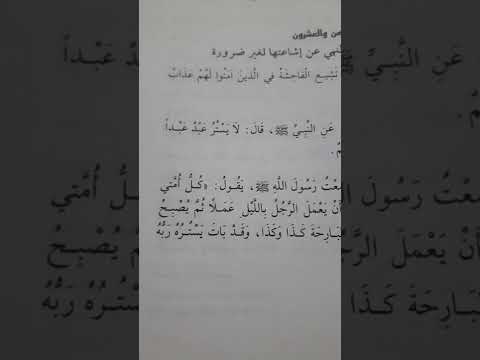 من والعشرون
لنهي عن إشاعتها لغير ضرورة
تَشِيعَ الْفَاحِشَةُ فِي الَّذِينَ آمَنُوا لَهُمْ عَذَابٌ
عَنِ النَّبِيِّ ﷺ، قَالَ: لَا يَسْتُرُ عَبْدٌ عَبْداً
مُ.
مِعْتُ رَسُولَ اللهِ ﷺ، يَقُولُ: «كُلُّ أُمَّتِي
أَنْ يَعْمَلَ الرَّجُلُ بِاللَّيْلِ عَمَلًا ثُمَّ يُصْبِحُ
لْبَارِحَةَ كَذَا وَكَذَا، وَقَدْ بَاتَ يَسْتُرُهُ رَبُّهُ